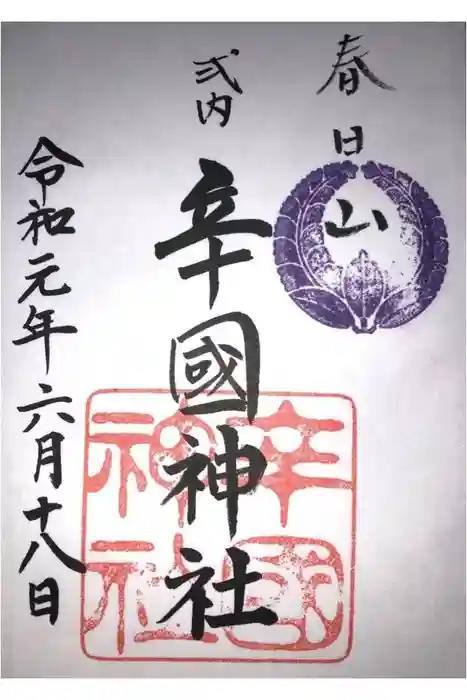 春日山
式内
辛國神社
令和元年六月十八日
辛國
神社